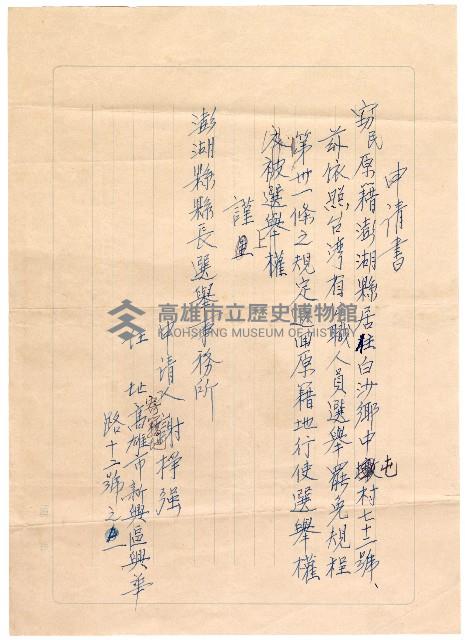 申请書
窃民原籍澎湖縣居住白沙鄉中屯村七十二號、
茲依照台湾省公職人員選舉罷免規程
第卅一條之規定返回原籍地行使選舉權
及被選舉權
謹上
澎湖縣縣長選舉事務所
申请人謝掙强
住址高雄市新興區興華
寄寓
路十二號之一
高雄市立歷史博物館
KAOHSIUNG MUSEUM OF HISTORY